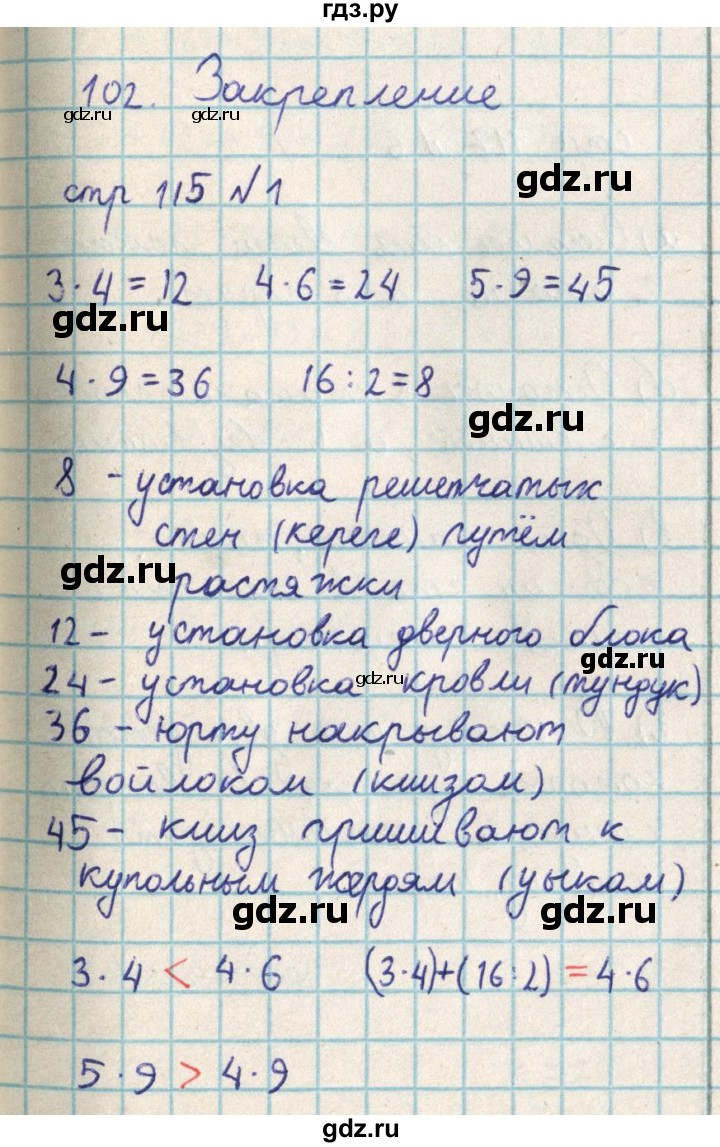 гдз.ру
102. Закрепление
gdz.ru gdz.ru
стр 115 №1
gdz.ru
3·4=12 4·6=24 5·9=45
gdz.ru
4·9=36 16:2=8
gdz.ru
8 - установка решетчатых
стен (кереге) путём
gdz.ru
растяжки
12 - установка дверного блока
gdz.ru
24 - установка кровли (тундук)
gdz.ru
36 - юрту накрывают
войлоком (киизом)
45 - кииз пришивают к
купольным жердям (уыкам)
gdz.ru gdz.ru
3·4 < 4·6 (3·4)+(16:2)=4·6
5·9 > 4·9
gdz.ru